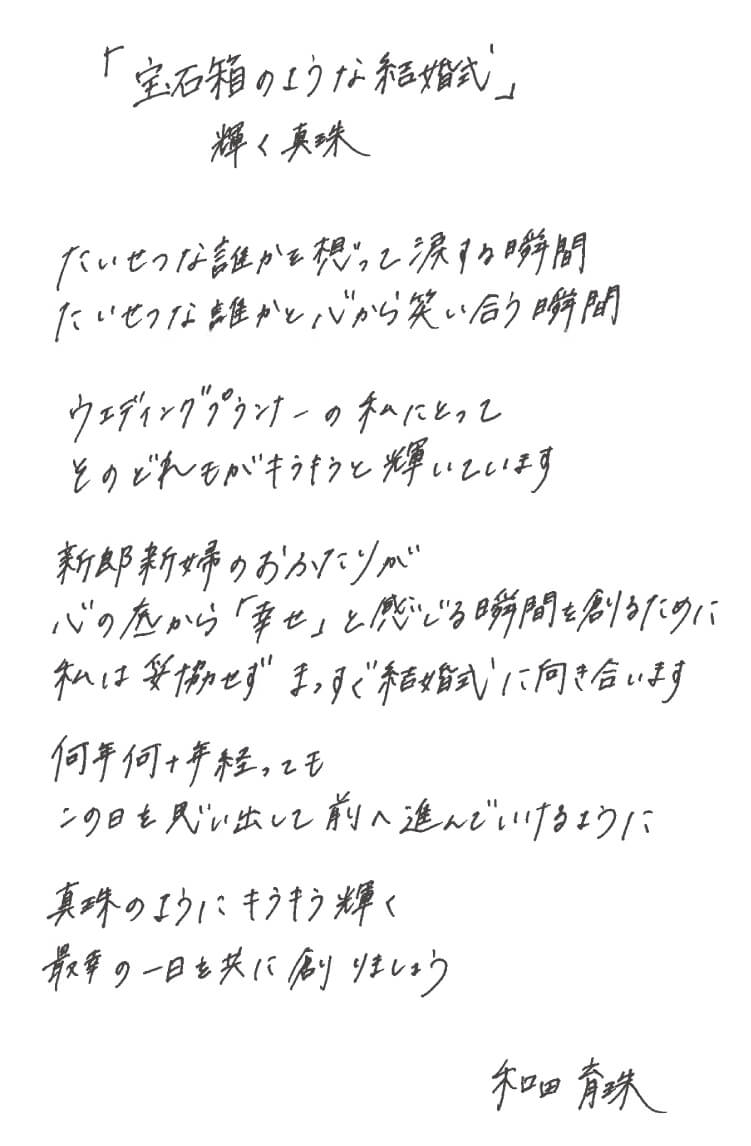 「宝石箱のような結婚式」
輝く真珠
たいせつな誰かを想って涙する瞬間
たいせつな誰かと心から笑い合う瞬間
ウエディングプランナーの私にとって
そのどれもがキラキラと輝いています
新郎新婦のおふたりが
心の底から「幸せ」と感じる瞬間を創るために
私は妥協せず まっすぐ結婚式に向き合います
何年何十年経っても
この日を思い出して前へ進んでいけるように
真珠のようにキラキラ輝く
最幸の一日を共に創りましょう
和田 育珠